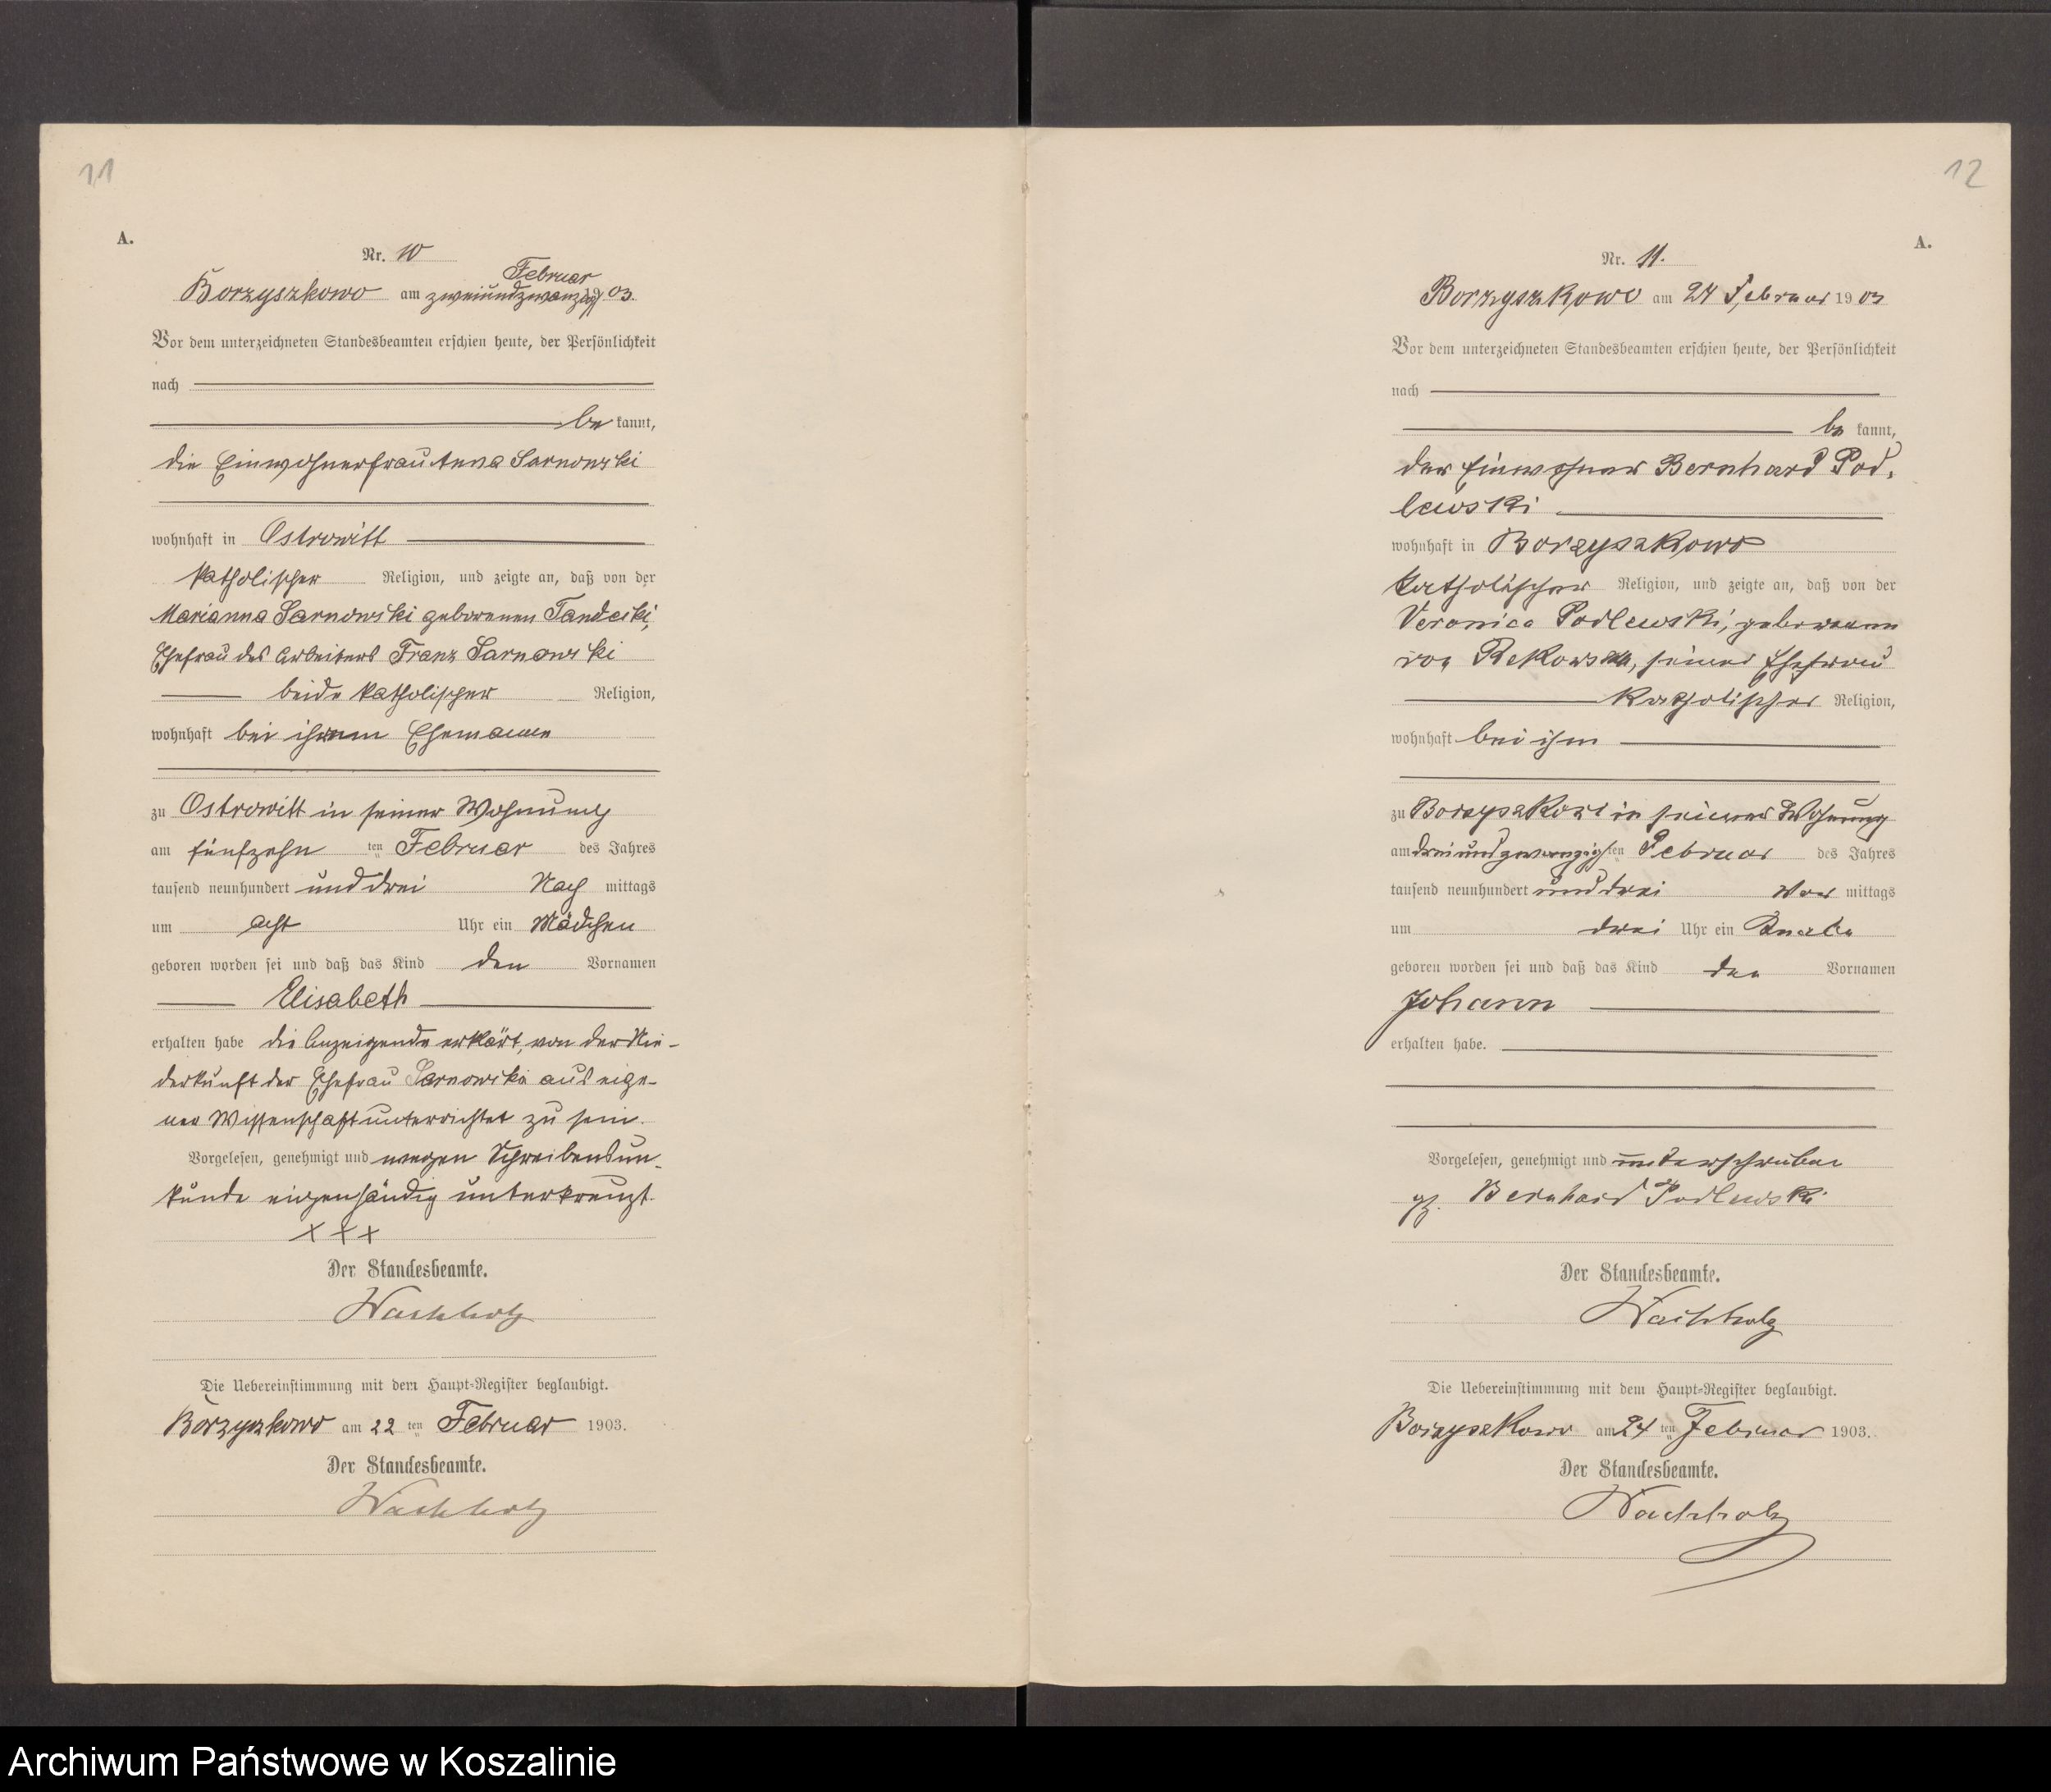 11
A.
Nr. 10
Februar
Borzyszkowo am zweiundzwanzigst 1903.
Vor dem unterzeichneten Standesbeamten erschien heute, der Persönlichkeit
nach
be kannt,
die Einwohnerfrau Anna Sarnowski
wohnhaft in Ostrowitt
katholischer Religion, und zeigte an, daß von der
Marianna Sarnowski geborenen Tandecki,
Ehefrau des Arbeiters Franz Sarnowski
beide katholischer Religion,
wohnhaft bei ihrem Ehemanne
zu Ostrowitt in seiner Wohnung
am fünfzehn ten Februar des Jahres
tausend neunhundert und drei Nach mittags
um acht Uhr ein Mädchen
geboren worden sei und daß das Kind den Vornamen
Elisabeth
erhalten habe die Anzeigende erklärt, von der Nie-
derkunft der Ehefrau Sarnowski aus eige-
ner Wissenschaft unterrichtet zu sein.
Vorgelesen, genehmigt und wegen Schreibensun-
kunde eigenhändig unterkreuzt.
+++
Der Standesbeamte.
Wachholz
Die Uebereinstimmung mit dem Haupt-Register beglaubigt.
Borzyszkowo am 22 ten Februar 1903.
Der Standesbeamte.
Wachholz
12
A.
Nr. 11.
Borzyszkowo am 24 Februar 1903
Vor dem unterzeichneten Standesbeamten erschien heute, der Persönlichkeit
nach
be kannt,
der Einwohner Bernhard Pod-
lewski
wohnhaft in Borzyszkowo
katholischer Religion, und zeigte an, daß von der
Veronica Podlewski, geborenen
von Rekowska, seiner Ehefrau
katholischer Religion,
wohnhaft bei ihm
zu Borzyszkowo in seiner Wohnung
am dreiundzwanzigsten Februar des Jahres
tausend neunhundert und drei Vor mittags
um drei Uhr ein Knabe
geboren worden sei und daß das Kind den Vornamen
Johann
erhalten habe.
Vorgelesen, genehmigt und unterschrieben
gz. Bernhard Podlewski
Der Standesbeamte.
Wachholz
Die Uebereinstimmung mit dem Haupt-Register beglaubigt.
Borzyszkowo am 24 ten Februar 1903.
Der Standesbeamte.
Wachholz
Archiwum Państwowe w Koszalinie